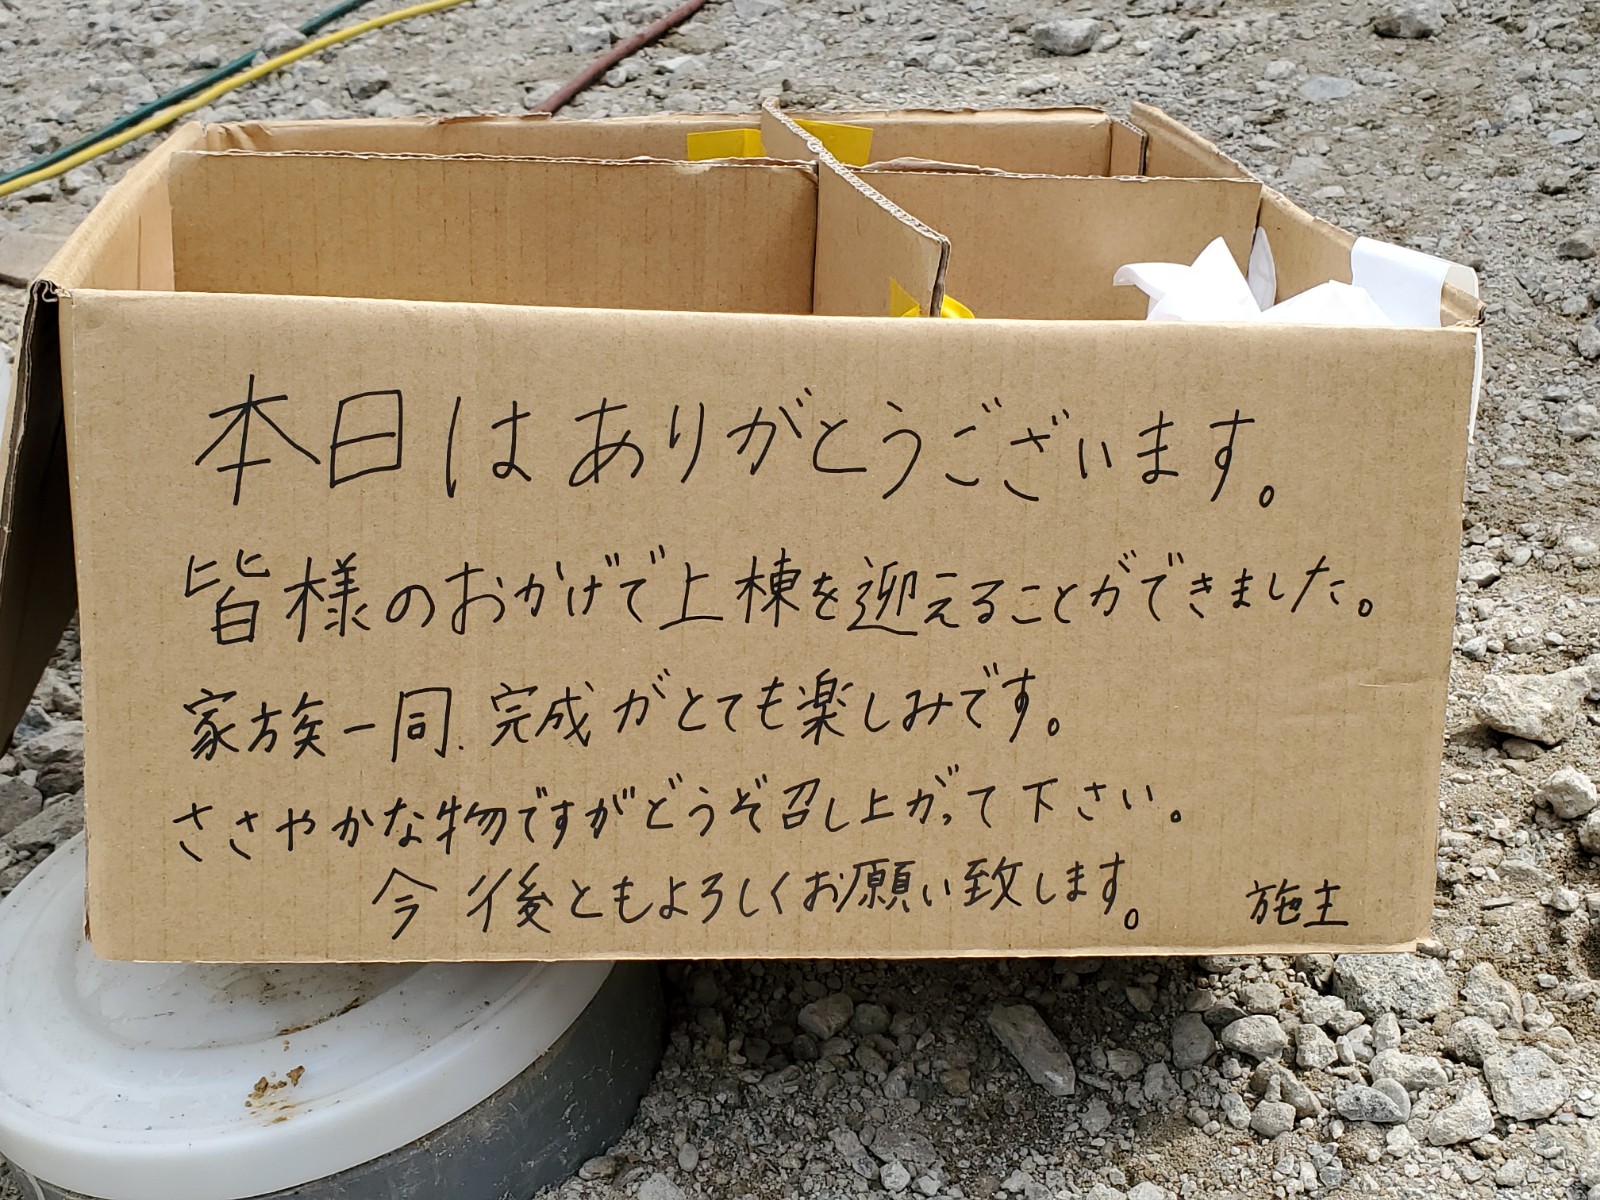 本日はありがとうございます。
皆様のおかげで上棟を迎えることができました。
家族一同、完成がとても楽しみです。
ささやかな物ですがどうぞ召し上がって下さい。
今後ともよろしくお願い致します。 施主